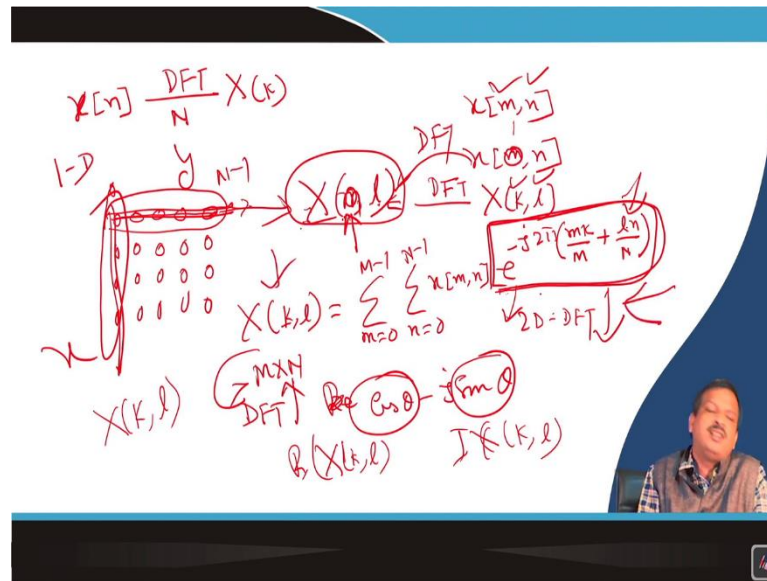 x[n] DFT/N X(k)
x[m,n]
1-D
y
N-1
DFT
x[m,n]
X(l)
DFT
X(k,l)
X(k,l) = \sum_{m=0}^{M-1} \sum_{n=0}^{N-1} x[m,n] e^{-j2π(mk/M + ln/N)}
2D-DFT
x
X(k,l)
M×N
DFT
Cosθ - jSinθ
R(X(k,l)
IX(k,l)